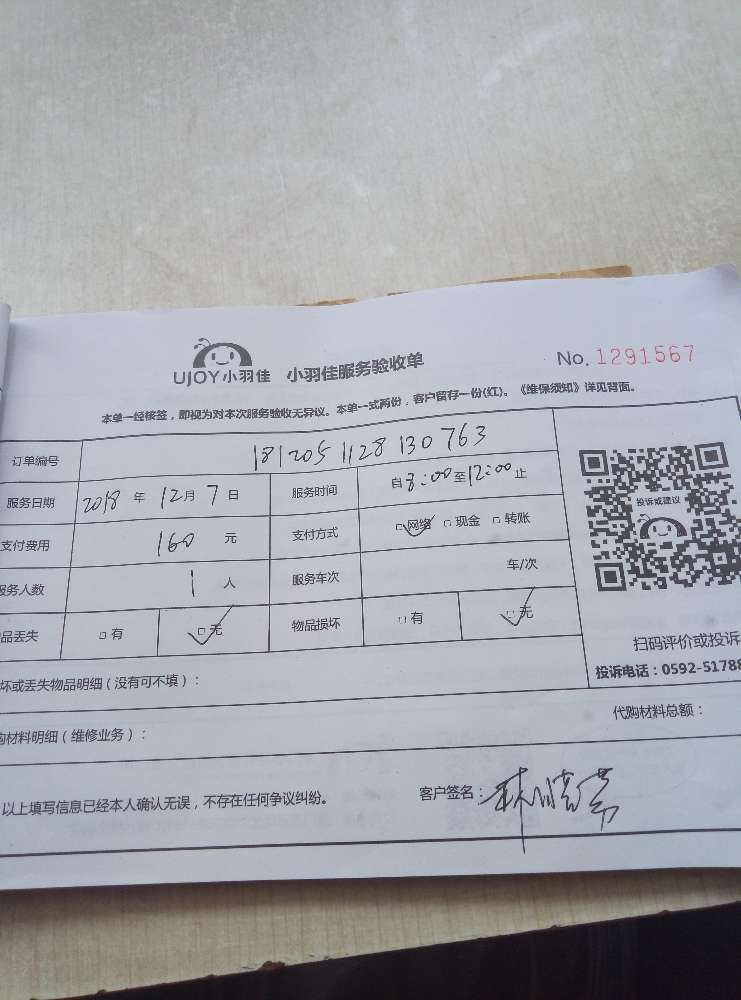 UJOY小羽佳 小羽佳服务验收单 No. 1291567
本单一经核签，即视为对本次服务验收无异议。本单一式两份，客户留存一份(红)。《维保须知》详见背面。
订单编号 181205112813076３
服务日期 2018 年 12月 7 日 服务时间 自8:00至12:00止
支付费用 160 元 支付方式 □网络 □现金 □转账
服务人数 1 人 服务车次 车/次
品丢失 □有 □无 物品损坏 □有 □无
投诉或建议
扫码评价或投诉
投诉电话：0592-51788
坏或丢失物品明细（没有可不填）：
购材料明细（维修业务）： 代购材料总额：
以上填写信息已经本人确认无误，不存在任何争议纠纷。 客户签名：林晓